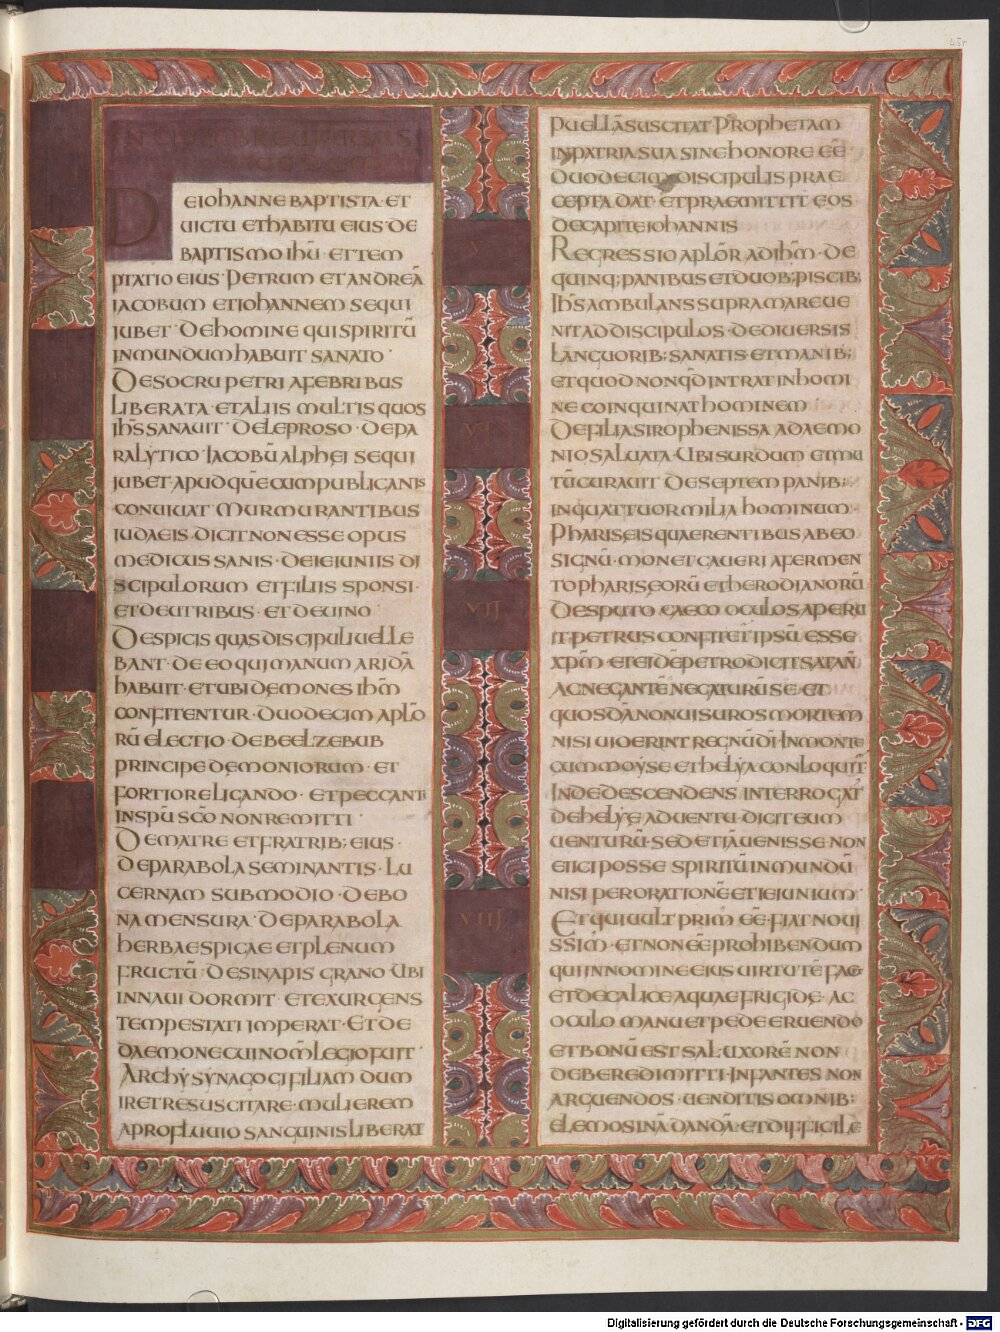 45r
D
EIOHANNE BAPTISTA · ET
UICTU ETHABITU EIUS · DE
BAPTISMO IHŪ · ET TEM
PTATIO EIUS · PETRUM ET ANDREĀ
IACOBUM ET IOHANNEM SEQUI
IUBET · DE HOMINE QUI SPIRITŪ
INMUNDUM HABUIT SANATO ·
DE SOCRU PETRI A FEBRIBUS
LIBERATA · ET ALIIS MULTIS QUOS
IHS SANAUIT · DE LEPROSO · DE PA
RALYTICO · IACOBŪ ALPHEI SEQUI
IUBET · APUD QUĒ CUM PUBLICANIS
CONUIUAT · MURMURANTIBUS
IUDAEIS · DICIT NON ESSE OPUS
MEDICUS SANIS · DE IEIUNIIS DI
SCIPULORUM ET FILIIS SPONSI ·
ET DE UTRIBUS · ET DE UINO
DE SPICIS QUAS DISCIPULI UELLE
BANT · DE EO QUI MANUM ARIDĀ
HABUIT · ET UBI DEMONES IHM̄
CONFITENTUR · DUODECIM APLO
RŪ ELECTIO · DE BEELZEBUB
PRINCIPE DĘMONIORUM · ET
FORTIORE LIGANDO · ET PECCANTI
IN SPŪ SCŌ NON REMITTI ·
DE MATRE ET FRATRIB; EIUS ·
DE PARABOLA SEMINANTIS · LU
CERNAM SUB MODIO · DE BO
NA MENSURA · DE PARABOLA
HERBAE SPICAE ET PLENUM
FRUCTŪ · DE SINAPIS GRANO · UBI
IN NAUI DORMIT · ET EXURGENS
TEMPESTATI IMPERAT · ET DE
DAEMONE CUI NOM̄ LEGIO FUIT
ARCHYSYNAGOGI FILIAM DUM
IRET RESUSCITARE · MULIEREM
A PROFLUUIO SANGUINIS LIBERAT
V
VI
VII
VIII
PUELLĀ SUSCITAT · PROPHETAM
IN PATRIA SUA SINE HONORE EĒ ·
DUODECIM DISCIPULIS PRAE
CEPTA DAT · ET PRAEMITTIT EOS
DE CAPITE IOHANNIS
REGRESSIO APLOR̄ AD IHM̄ · DE
QUINQ; PANIBUS ET DUOB; PISCIB;
IHS AMBULANS SUPRA MARE UE
NIT AD DISCIPULOS · DE DIUERSIS
LANGUORIB; SANATIS · ET MANIB;
ET QUOD NON QD̄ INTRAT IN HOMI
NE COINQUINAT HOMINEM
DE FILIA SIROPHENISSA A DAEMO
NIO SALUATA · UBI SURDUM ET MU
TŪ CURAUIT · DE SEPTEM PANIB;
IN QUATTUOR MILIA HOMINUM ·
PHARISEIS QUAERENTIBUS AB EO
SIGNŪ · MONET CAUERI A FERMEN
TO PHARISĘORŪ ET HERODIANORŪ
DE SPUTO CAECO OCULOS APERU
IT · PETRUS CONFITET̄ IPSŪ ESSE
XPM̄ · ET EIDĒ PETRO DICIT SATAN̄
AC NEGANTĒ NEGATURŪ SE · ET
QUOSDĀ NON UISUROS MORTEM
NISI UIDERINT REGNŪ DĪ · IN MONTE
CUM MOYSE ET HELYA CONLOQUIT̄
INDE DESCENDENS INTERROGAT̄
DE HELYĘ ADUENTU · DICIT EUM
UENTURŪ · SED ET IĀ UENISSE NON
EIICI POSSE SPIRITŪ INMUNDŪ
NISI PER ORATIONĒ ET IEIUNIUM ·
ET QUI UULT PRIM̄ EĒ · FIAT NOUI
SSIM̄ · ET NON EĒ PROHIBENDUM
QUI IN NOMINE EIUS UIRTUTĒ FAC̄
ET DE CALICE AQUAE FRIGIDĘ · AC
OCULO MANU ET PEDE ERUENDO
ET BONŪ EST SAL · UXORĒ NON
DEBERE DIMITTI · INFANTES NON
ARGUENDOS · UENDITIS OMNIB;
ELEMOSINĀ DANDĀ · ET DIFFICILE
Digitalisierung gefördert durch die Deutsche Forschungsgemeinschaft - DFG